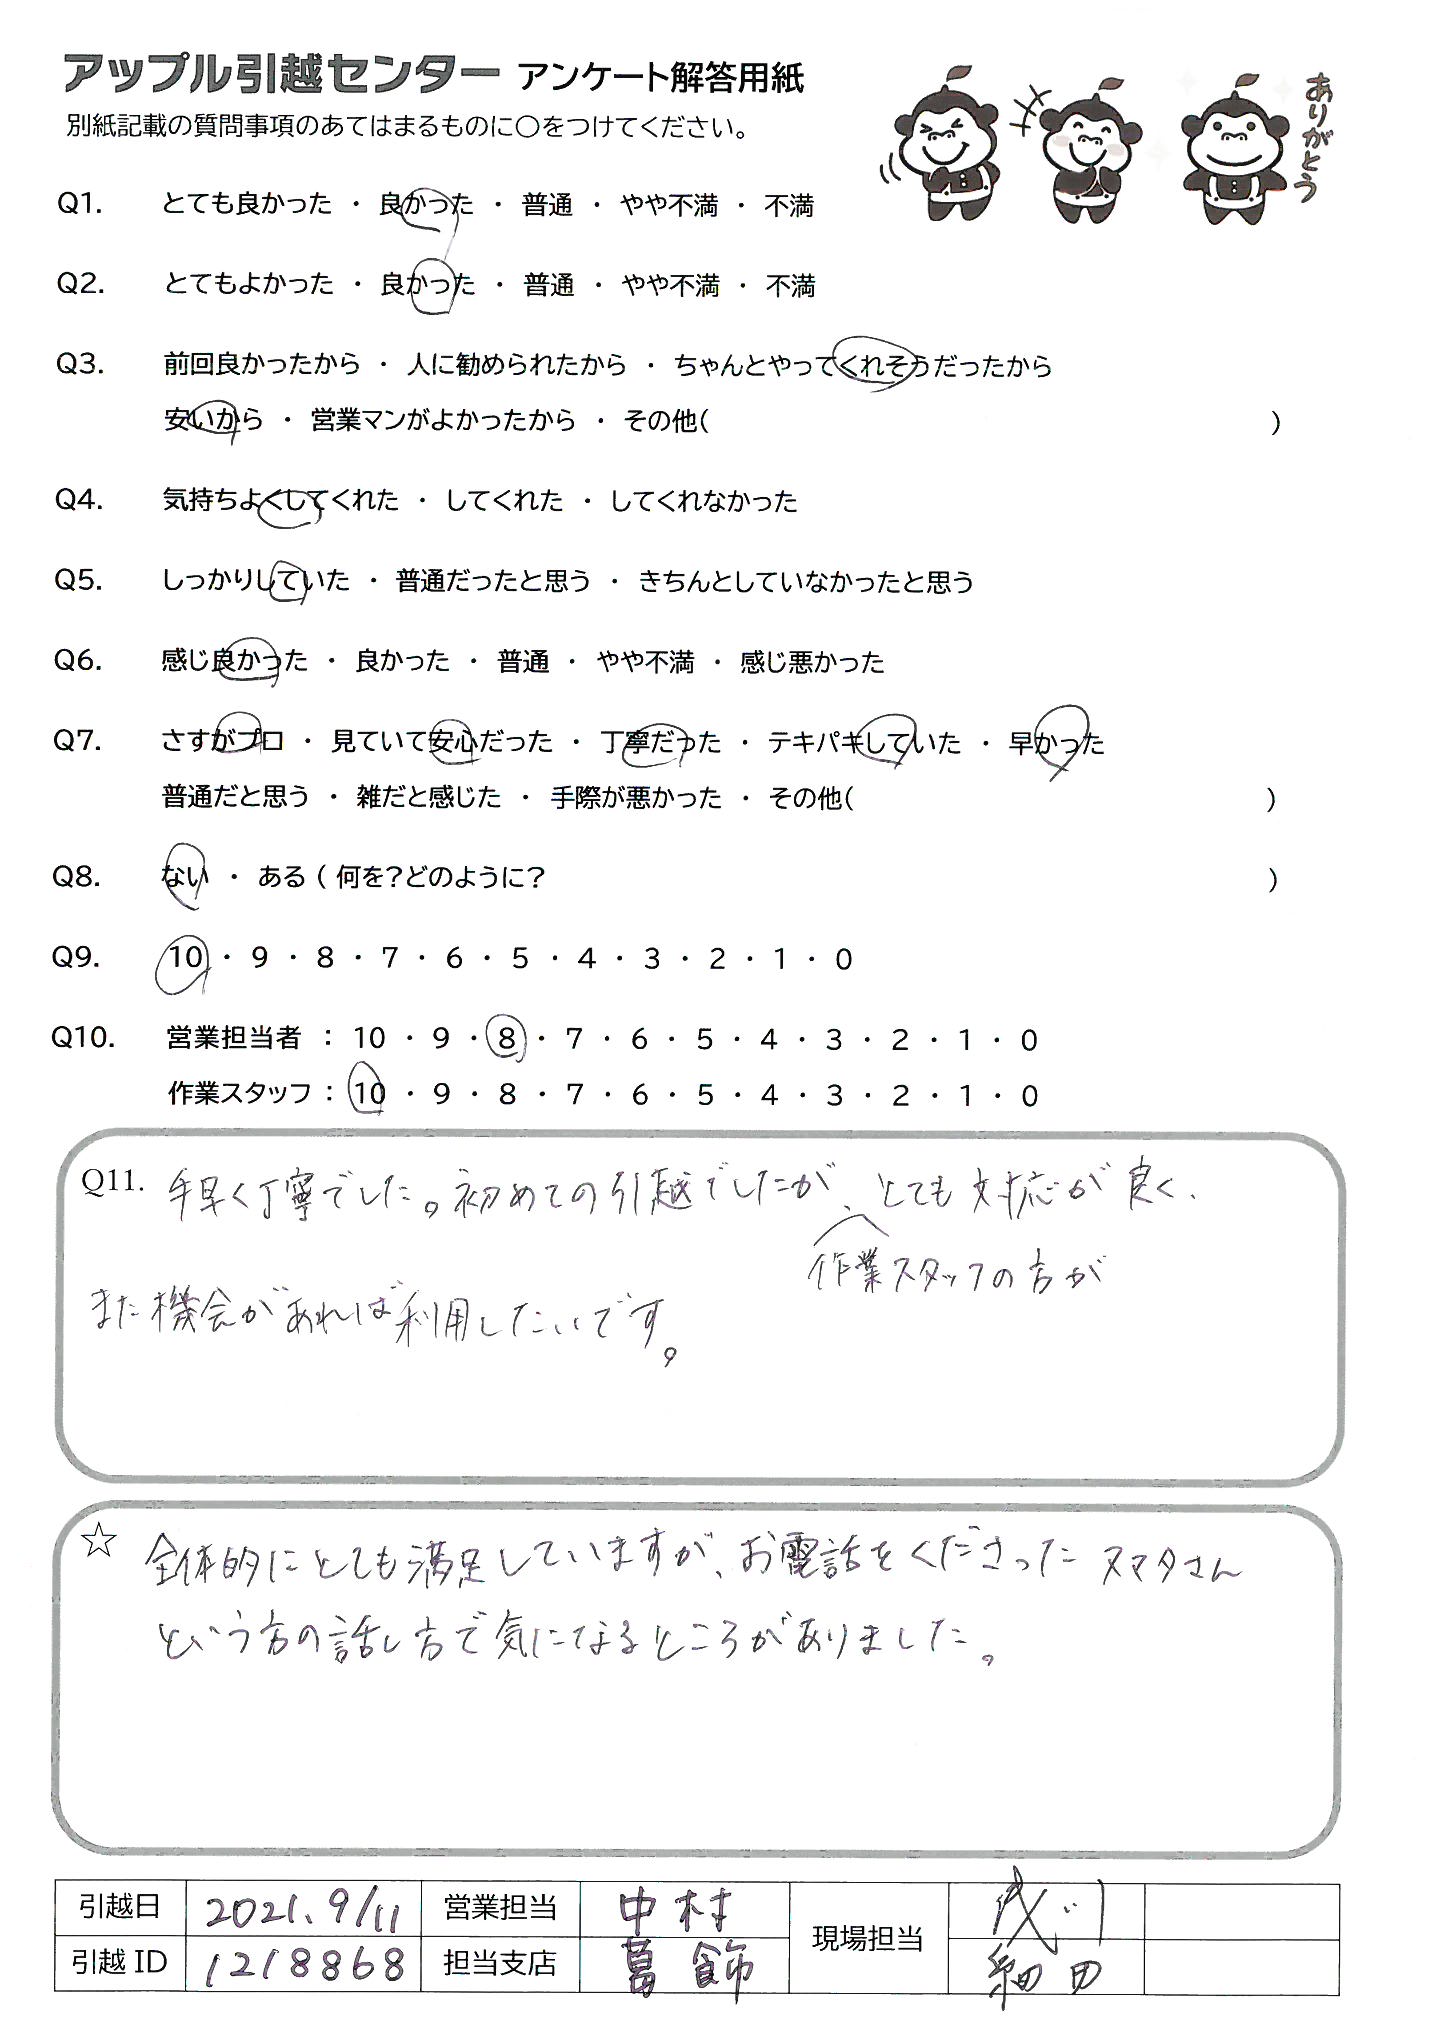 アップル引越センター アンケート解答用紙
別紙記載の質問事項のあてはまるものに○をつけてください。
ありがとう
Q1. とても良かった ・ 良かった ・ 普通 ・ やや不満 ・ 不満
Q2. とてもよかった ・ 良かった ・ 普通 ・ やや不満 ・ 不満
Q3. 前回良かったから ・ 人に勧められたから ・ ちゃんとやってくれそうだったから
安いから ・ 営業マンがよかったから ・ その他( )
Q4. 気持ちよくしてくれた ・ してくれた ・ してくれなかった
Q5. しっかりしていた ・ 普通だったと思う ・ きちんとしていなかったと思う
Q6. 感じ良かった ・ 良かった ・ 普通 ・ やや不満 ・ 感じ悪かった
Q7. さすがプロ ・ 見ていて安心だった ・ 丁寧だった ・ テキパキしていた ・ 早かった
普通だと思う ・ 雑だと感じた ・ 手際が悪かった ・ その他( )
Q8. ない ・ ある ( 何を?どのように? )
Q9. 10 ・ 9 ・ 8 ・ 7 ・ 6 ・ 5 ・ 4 ・ 3 ・ 2 ・ 1 ・ 0
Q10. 営業担当者 : 10 ・ 9 ・ 8 ・ 7 ・ 6 ・ 5 ・ 4 ・ 3 ・ 2 ・ 1 ・ 0
作業スタッフ : 10 ・ 9 ・ 8 ・ 7 ・ 6 ・ 5 ・ 4 ・ 3 ・ 2 ・ 1 ・ 0
Q11. 手早く丁寧でした。初めての引越でしたが、とても対応が良く、
作業スタッフの方が
また機会があれば利用したいです。
☆ 全体的にとても満足していますが、お電話をくださったヌマタさん
という方の話し方で気になるところがありました。
引越日 2021.9/11 営業担当 中村 現場担当
引越ID 1218868 担当支店 葛飾 細田